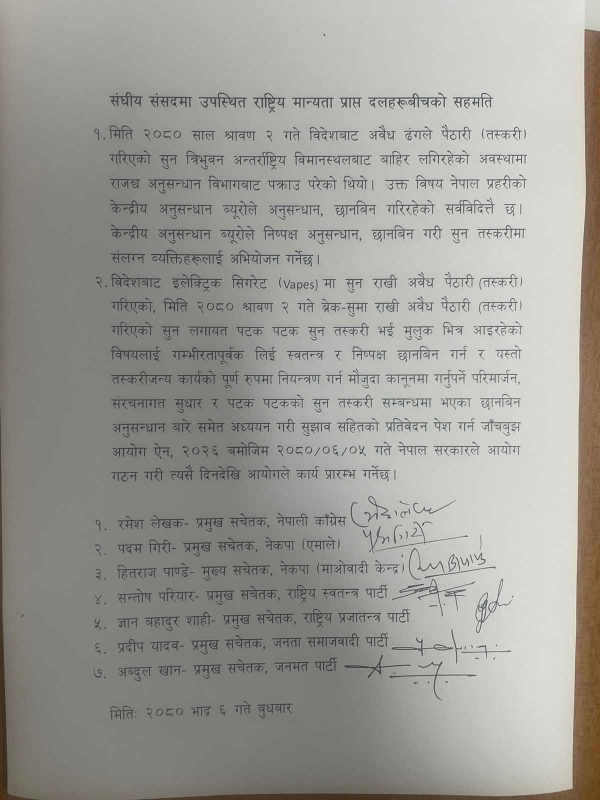 संघीय संसदमा उपस्थित राष्ट्रिय मान्यता प्राप्त दलहरूबीचको सहमति
१. मिति २०८० साल श्रावण २ गते विदेशबाट अवैध ढंगले पैठारी (तस्करी)
गरिएको सुन त्रिभुवन अन्तर्राष्ट्रिय विमानस्थलबाट बाहिर लगिरहेको अवस्थामा
राजश्व अनुसन्धान विभागबाट पक्राउ परेको थियो। उक्त विषय नेपाल प्रहरीको
केन्द्रीय अनुसन्धान ब्यूरोले अनुसन्धान, छानबिन गरिरहेको सर्वविदितै छ।
केन्द्रीय अनुसन्धान ब्यूरोले निष्पक्ष अनुसन्धान, छानबिन गरी सुन तस्करीमा
संलग्न व्यक्तिहरूलाई अभियोजन गर्नेछ।
२. विदेशबाट इलेक्ट्रिक सिगरेट (Vapes) मा सुन राखी अवैध पैठारी (तस्करी)
गरिएको, मिति २०८० श्रावण २ गते ब्रेक-सुमा राखी अवैध पैठारी (तस्करी)
गरिएको सुन लगायत पटक पटक सुन तस्करी भई मुलुक भित्र आइरहेको
विषयलाई गम्भीरतापूर्वक लिई स्वतन्त्र र निष्पक्ष छानबिन गर्न र यस्तो
तस्करीजन्य कार्यको पूर्ण रुपमा नियन्त्रण गर्न मौजुदा कानूनमा गर्नुपर्ने परिमार्जन,
संरचनागत सुधार र पटक पटकको सुन तस्करी सम्बन्धमा भएका छानबिन
अनुसन्धान बारे समेत अध्ययन गरी सुझाव सहितको प्रतिवेदन पेश गर्न जाँचबुझ
आयोग ऐन, २०२६ बमोजिम २०८०/०६/०५ गते नेपाल सरकारले आयोग
गठन गरी त्यसै दिनदेखि आयोगले कार्य प्रारम्भ गर्नेछ।
१. रमेश लेखक- प्रमुख सचेतक, नेपाली काँग्रेस
२. पदम गिरी- प्रमुख सचेतक, नेकपा (एमाले)
३. हितराज पाण्डे- मुख्य सचेतक, नेकपा (माओवादी केन्द्र)
४. सन्तोष परियार- प्रमुख सचेतक, राष्ट्रिय स्वतन्त्र पार्टी
५. ज्ञान बहादुर शाही- प्रमुख सचेतक, राष्ट्रिय प्रजातन्त्र पार्टी
६. प्रदीप यादव- प्रमुख सचेतक, जनता समाजवादी पार्टी
७. अब्दुल खान- प्रमुख सचेतक, जनमत पार्टी
मितिः २०८० भाद्र ६ गते बुधबार